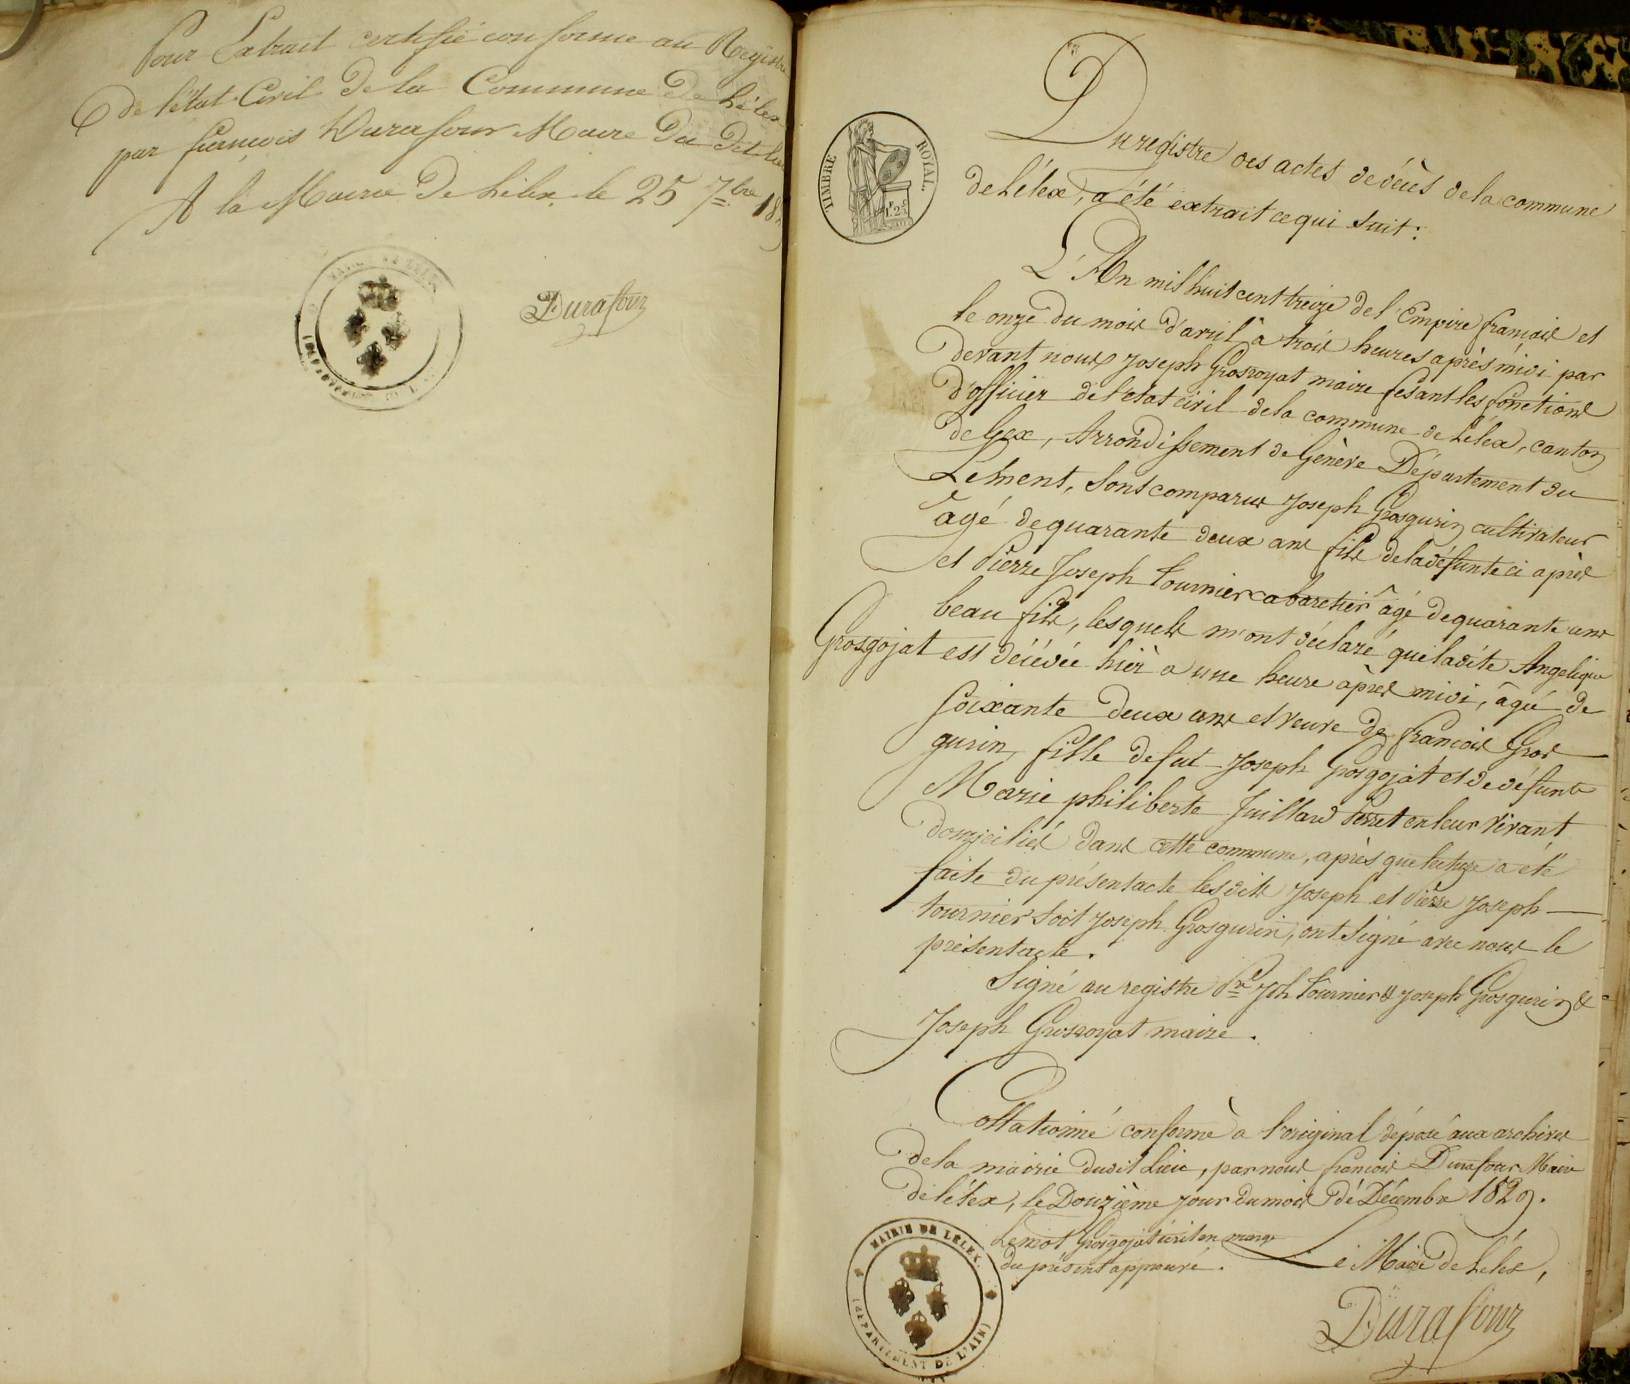 Pour Extrait certifié conforme au Registre
De l'état Civil De la Commune De Lélex
par francois Durafour Maire Du Dit lieu
A la Mairie De Lélex le 25 7bre 18
Durafour
TIMBRE ROYAL.
1F.25C
Du registre des actes de décès de la commune
de Lélex, a été extrait ce qui suit:
L'An mil huit cent treize de l'Empire français et
le onze du mois d'avril à trois heures après midi par
devant nous Joseph Grosroyat maire fesant les fonctions
d'officier de l'etat civil de la commune de Lélex, canton
de Gex, Arrondissement de Génève Département du
Lement, sont comparus Joseph Grosgurin cultivateur
âgé de quarante deux ans fils de la défunte ci après
et Pierre Joseph tournier cabaretier âgé de quarante ans
beau fils, lesquels m'ont déclaré que ladite Angelique
Grosgojat est décédée hièr a une heure après midi, âgé de
soixante deux ans et veuve de françois Gros
gurin, fille de fut Joseph Grosgojat et de défunte
Marie philiberte Juillard Perret en leur vivant
domiciliés dans cette commune, après que lecture a été
faite du présent acte lesdits Joseph et Pierre Joseph
tournier soit Joseph Grosgurin, ont signé avec nous le
présent acte.
Signé au registre Pre Jph tournier & Joseph Grosgurin &
Joseph Grosroyat maire.
Collationné conforme a l'original déposé aux archives
de la mairie dudit Lieu, par nous françois Durafour Maire
de Lélex, le Douzième jour du mois de Décembre 1829.
Le mot Grosgojat écrit en marge
du présent approuvé.
Le Maire de Lélex,
Durafour
MAIRIE DE LÉLEX.
(DÉPARTEMENT DE L'AIN)